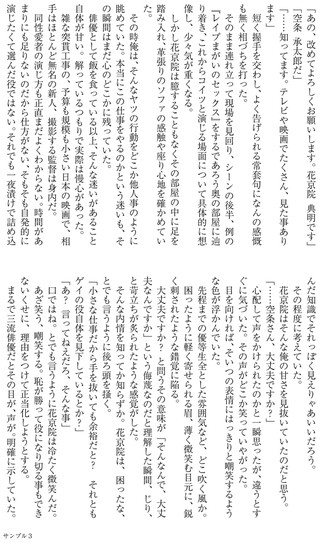 「あの、改めてよろしくお願いします。花京院　典明です」
「空条　承太郎だ」
「……知ってます。テレビや映画でたくさん、見た事あり
ます」
　短く握手を交わし、よく告げられる常套句になんの感慨
も無く相づちを打った。
　そのまま連れ立って現場を見回り、シーンの後半、例の
『レイプまがいのセックス』をするであろう奥の部屋に辿
り着き、これからコイツと演じる場面について具体的に想
像し、少々気が重くなる。
　しかし花京院は臆することもなくその部屋の中に足を
踏み入れ、革張りのソファの感触や座り心地を確かめてい
る。
　その時俺は、そんなヤツの行動をどこか他人事のように
眺めていた。本当にこの仕事をやるのかという迷いも、そ
の瞬間はまだ心のどこかに残っていた。
　俳優として飯を食っている以上、そんな迷いがあること
自体が甘い。解っているつもりで実際は慢心があった。
　雑な突貫工事の、予算も規模も小さい日本の映画で、相
手はほとんど無名の新人、撮影する監督は身内だ。
　同性愛者の演じ方も正直まだよくわからない。時間があ
まりにも足りないのだから仕方がない。そもそも自発的に
演じたくて選んだ役ではない。それでも一夜漬けで詰め込
んだ知識でそれっぽく見えりゃあいいだろう。
　その程度に考えていた。
　花京院はそんな俺の甘さを見抜いていたのだと思う。
「……空条さん、大丈夫ですか？」
　心配して声をかけられたのかと一瞬思ったが、違うとす
ぐに気づいた。その声がどこか笑っていやがった。
　目を向ければ、そいつの表情にはっきりと嘲笑するよう
な色が浮かんでいた。
　先程までの優等生然とした雰囲気など、どこ吹く風か。
　困ったように軽く寄せられる眉、薄く微笑む目元に、鋭
く刺されたような錯覚に陥る。
　大丈夫ですか？と問うその意味が「そんなんで、大丈
夫なんですか」という侮蔑なのだと理解した瞬間、じり、
と苛立ちが炙られたような感覚がした。
　そんな内情を知ってか知らずか、花京院は、困ったな、
とでも言うように後ろ頭を掻く。
「小さな仕事だから手を抜いても余裕だと？　それとも
ゲイの役自体を見下しているとか？」
「あ？　言ってねえだろ、そんな事」
　口ではね。とでも言うように花京院は冷たく微笑んだ。
　あざ笑う、嘲笑する。恥が勝って役になり切る事もでき
ないくせに、理由をつけて正当化しようとする。
　まるで三流俳優だとその目が、声が、明確に示していた。
サンプル３